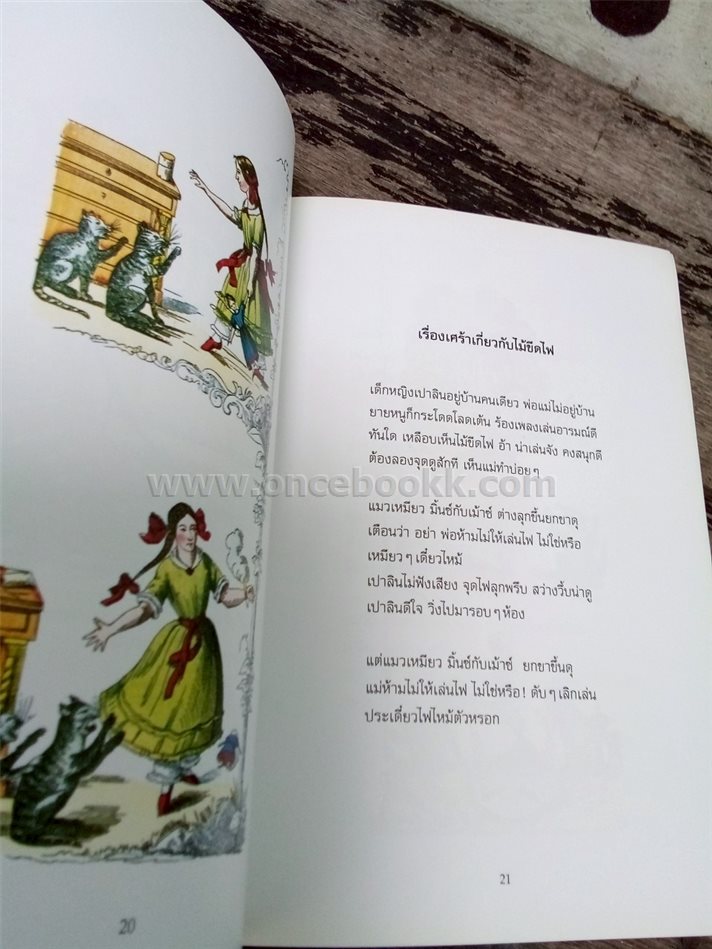 เรื่องเศร้าเกี่ยวกับไม้ขีดไฟ
เด็กหญิงเปาลินอยู่บ้านคนเดียว พ่อแม่ไม่อยู่บ้าน
ยายหนูก็กระโดดโลดเต้น ร้องเพลงเล่นอารมณ์ดี
ทันใด เหลือบเห็นไม้ขีดไฟ อ้า น่าเล่นจัง คงสนุกดี
ต้องลองจุดดูสักที เห็นแม่ทำบ่อยๆ
www.oncebookk.com
แมวเหมียว มิ้นซ์กับเม้าซ์ ต่างลุกขึ้นยกขาดุ
เตือนว่า อย่า พ่อห้ามไม่ให้เล่นไฟ ไม่ใช่หรือ
เหมียวๆ เดี๋ยวไหม้
เปาลินไม่ฟังเสียง จุดไฟลุกพรึบ สว่างวี้บน่าดู
เปาลินดีใจ วิ่งไปมารอบๆ ห้อง
แต่แมวเหมียว มิ้นซ์กับเม้าซ์ ยกขาขึ้นดุ
แม่ห้ามไม่ให้เล่นไฟ ไม่ใช่หรือ! ดับๆ เลิกเล่น
ประเดี๋ยวไฟไหม้ตัวหรอก
20
21